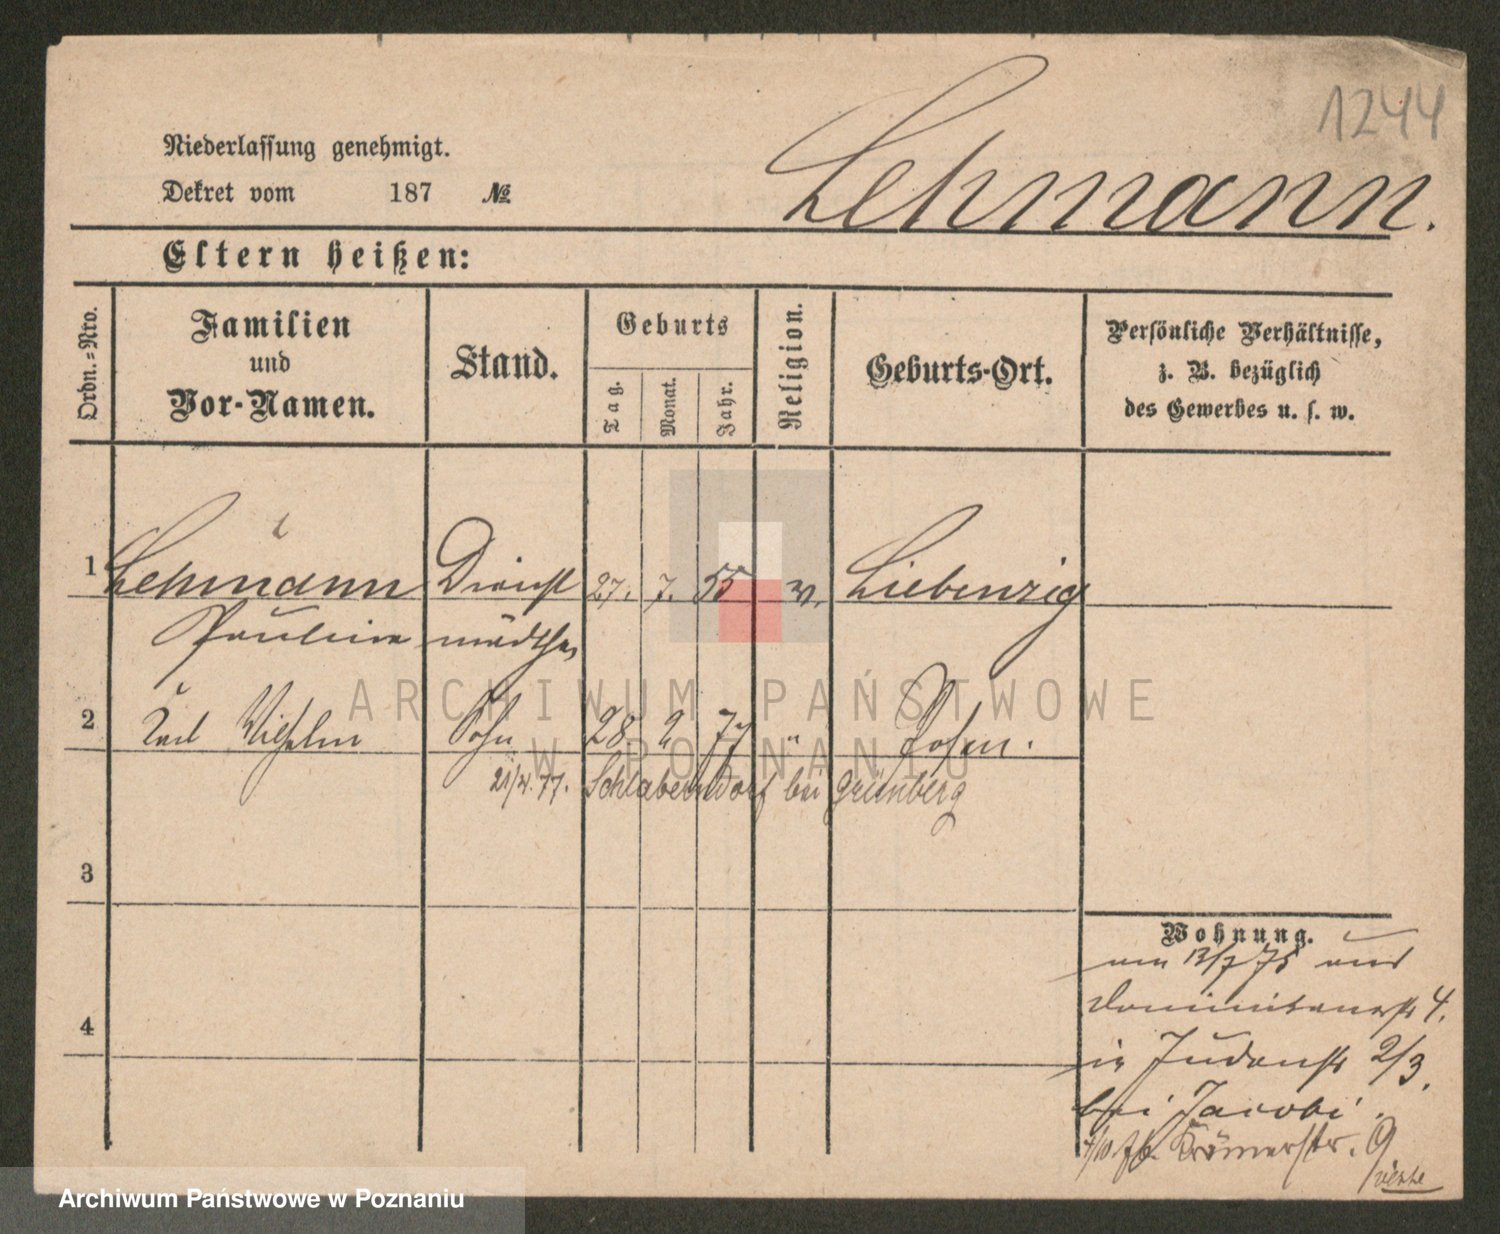 1244
Lehmann.
Niederlassung genehmigt.
Dekret vom 187 №
Eltern heißen:
Ordn.-Nro.
Familien
und
Vor-Namen.
Stand.
Geburts
Tag.
Monat.
Jahr.
Religion.
Geburts-Ort.
Persönliche Verhältnisse,
z. B. bezüglich
des Gewerbes u. s. w.
1 Lehmann Dienst 27. 7. 55 Liebenzig
Pauline mädchen
ARCHIWUM PAŃSTWOWE
W POZNANIU
2 Karl Wilhelm Sohn 28 2 77 " Posen.
21/4. 77. Schlabendorf bei Grünberg
3
4
Wohnung.
am 13/7 75 aus
Dominikanerstr 4.
in Judenstr 2/3.
bei Jacobi.
7/10. 76. Krämerstr. 9
Archiwum Państwowe w Poznaniu